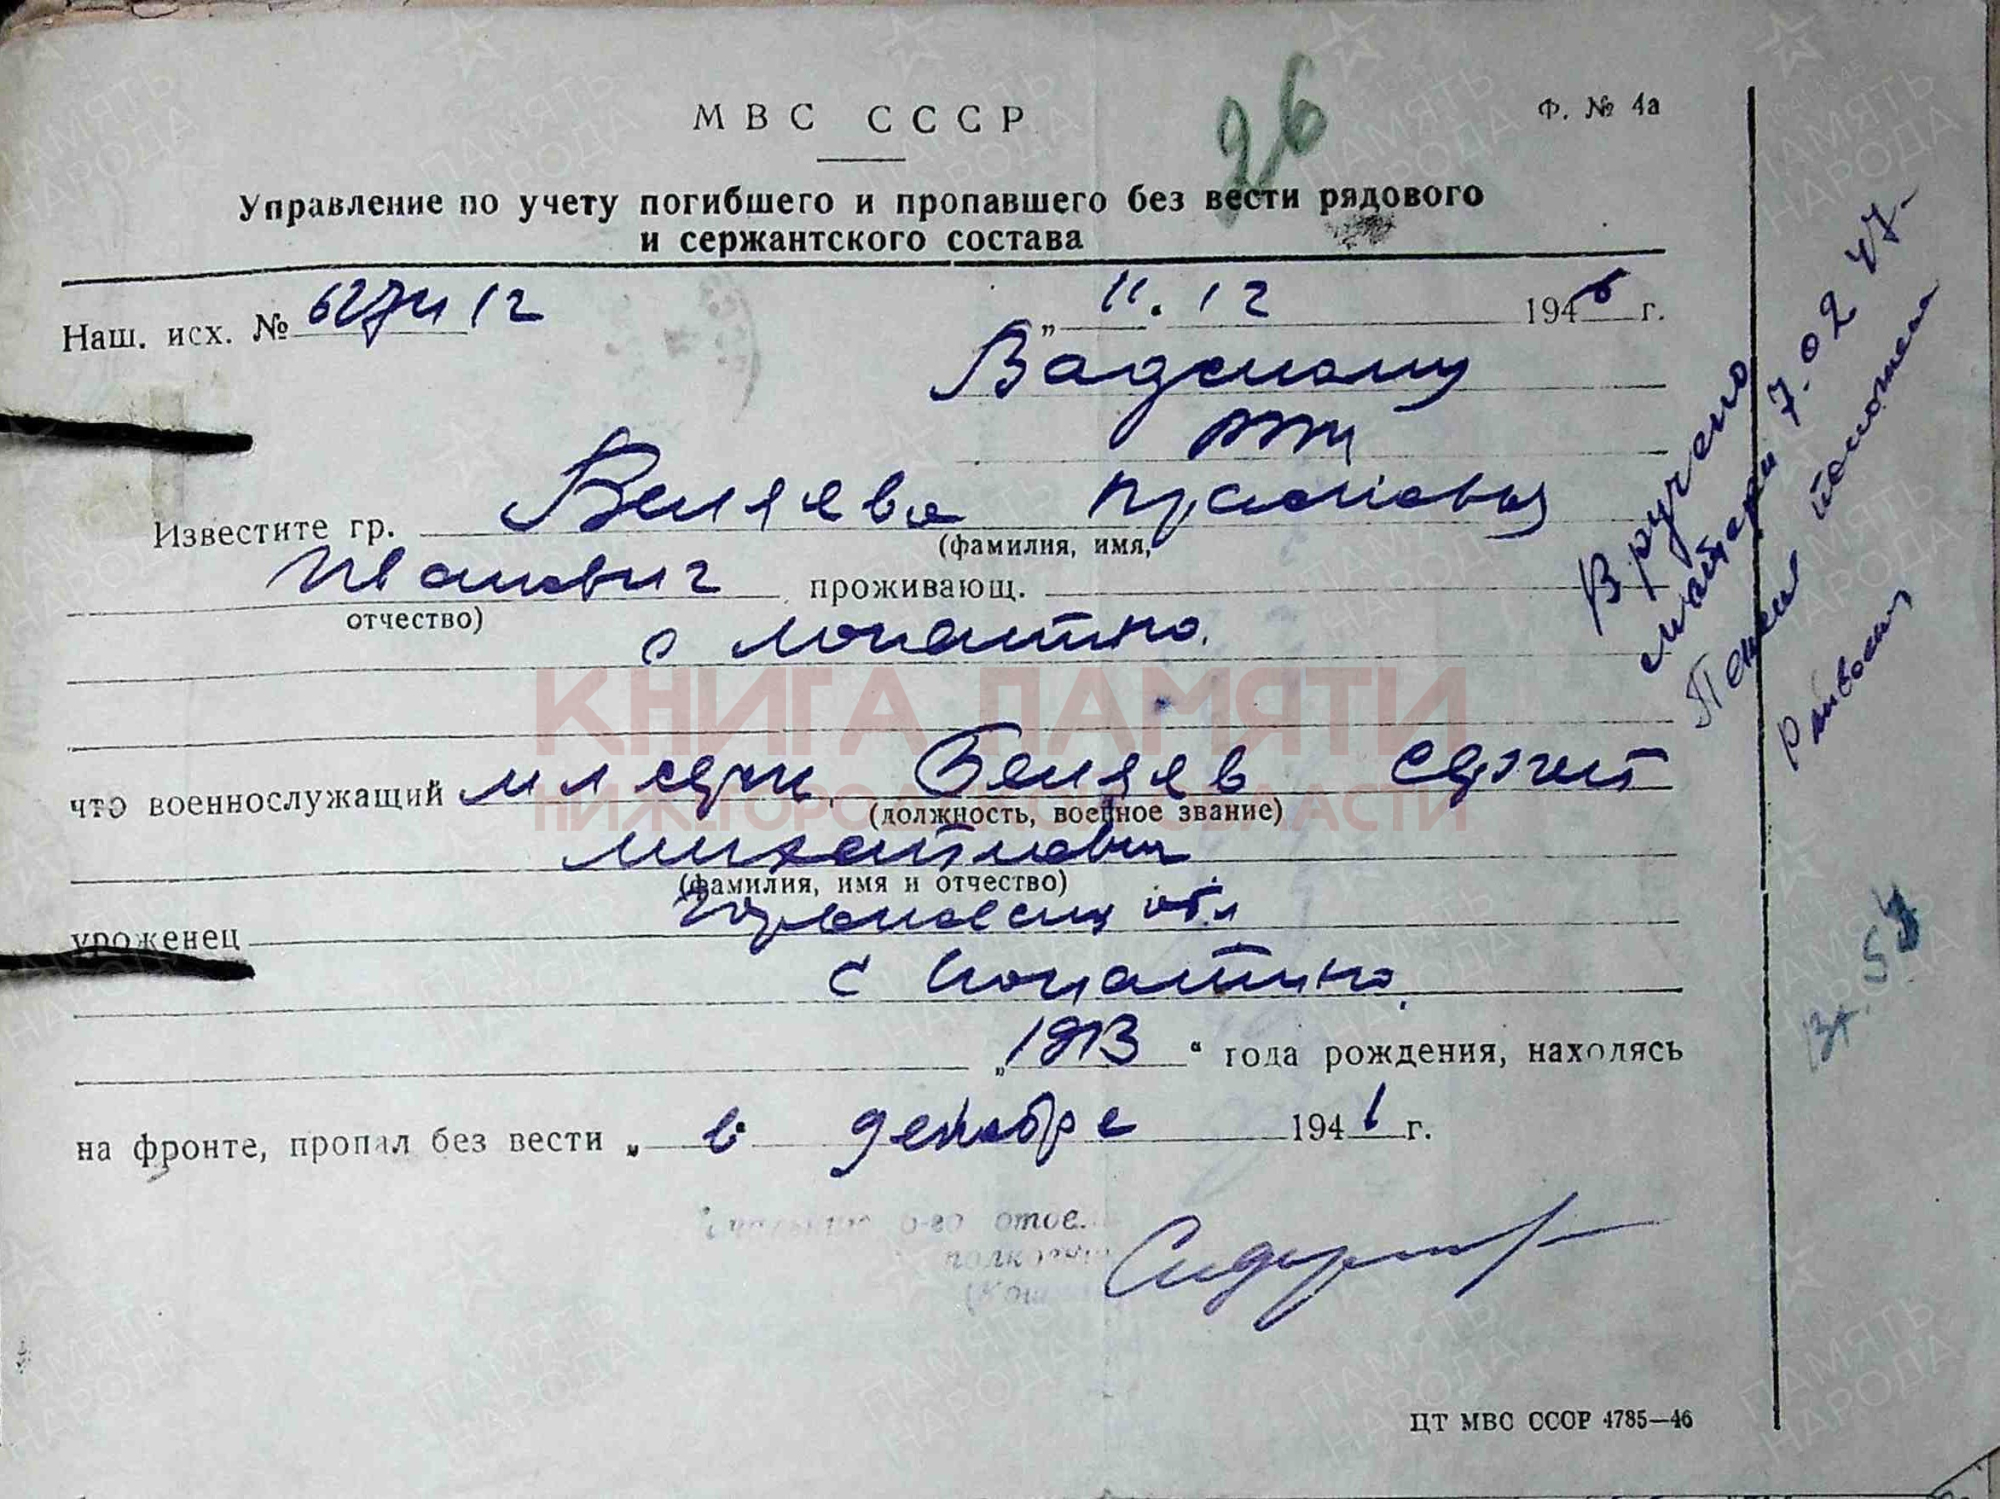 26
МВС СССР
Ф. № 4а
Управление по учету погибшего и пропавшего без вести рядового
и сержантского состава
Наш. исх. №
„ 11. 12 1946 г.
Вадскому
РВК
Известите гр. Беляева
(фамилия, имя,
Иванович проживающ.
отчество)
с Лопатино.
КНИГА ПАМЯТИ
НИЖЕГОРОДСКОЙ ОБЛАСТИ
что военнослужащий мл серж. Беляев Сергей
(должность, военное звание)
Михайлович
(фамилия, имя и отчество)
уроженец Горьковская обл
с Лопатино,
„1913“ года рождения, находясь
на фронте, пропал без вести „ в декабре 1941 г.
6-го отдела
ЦТ МВС СССР 4785—46
Вручено
матери 7.02 47.
ПАМЯТЬ
НАРОДА